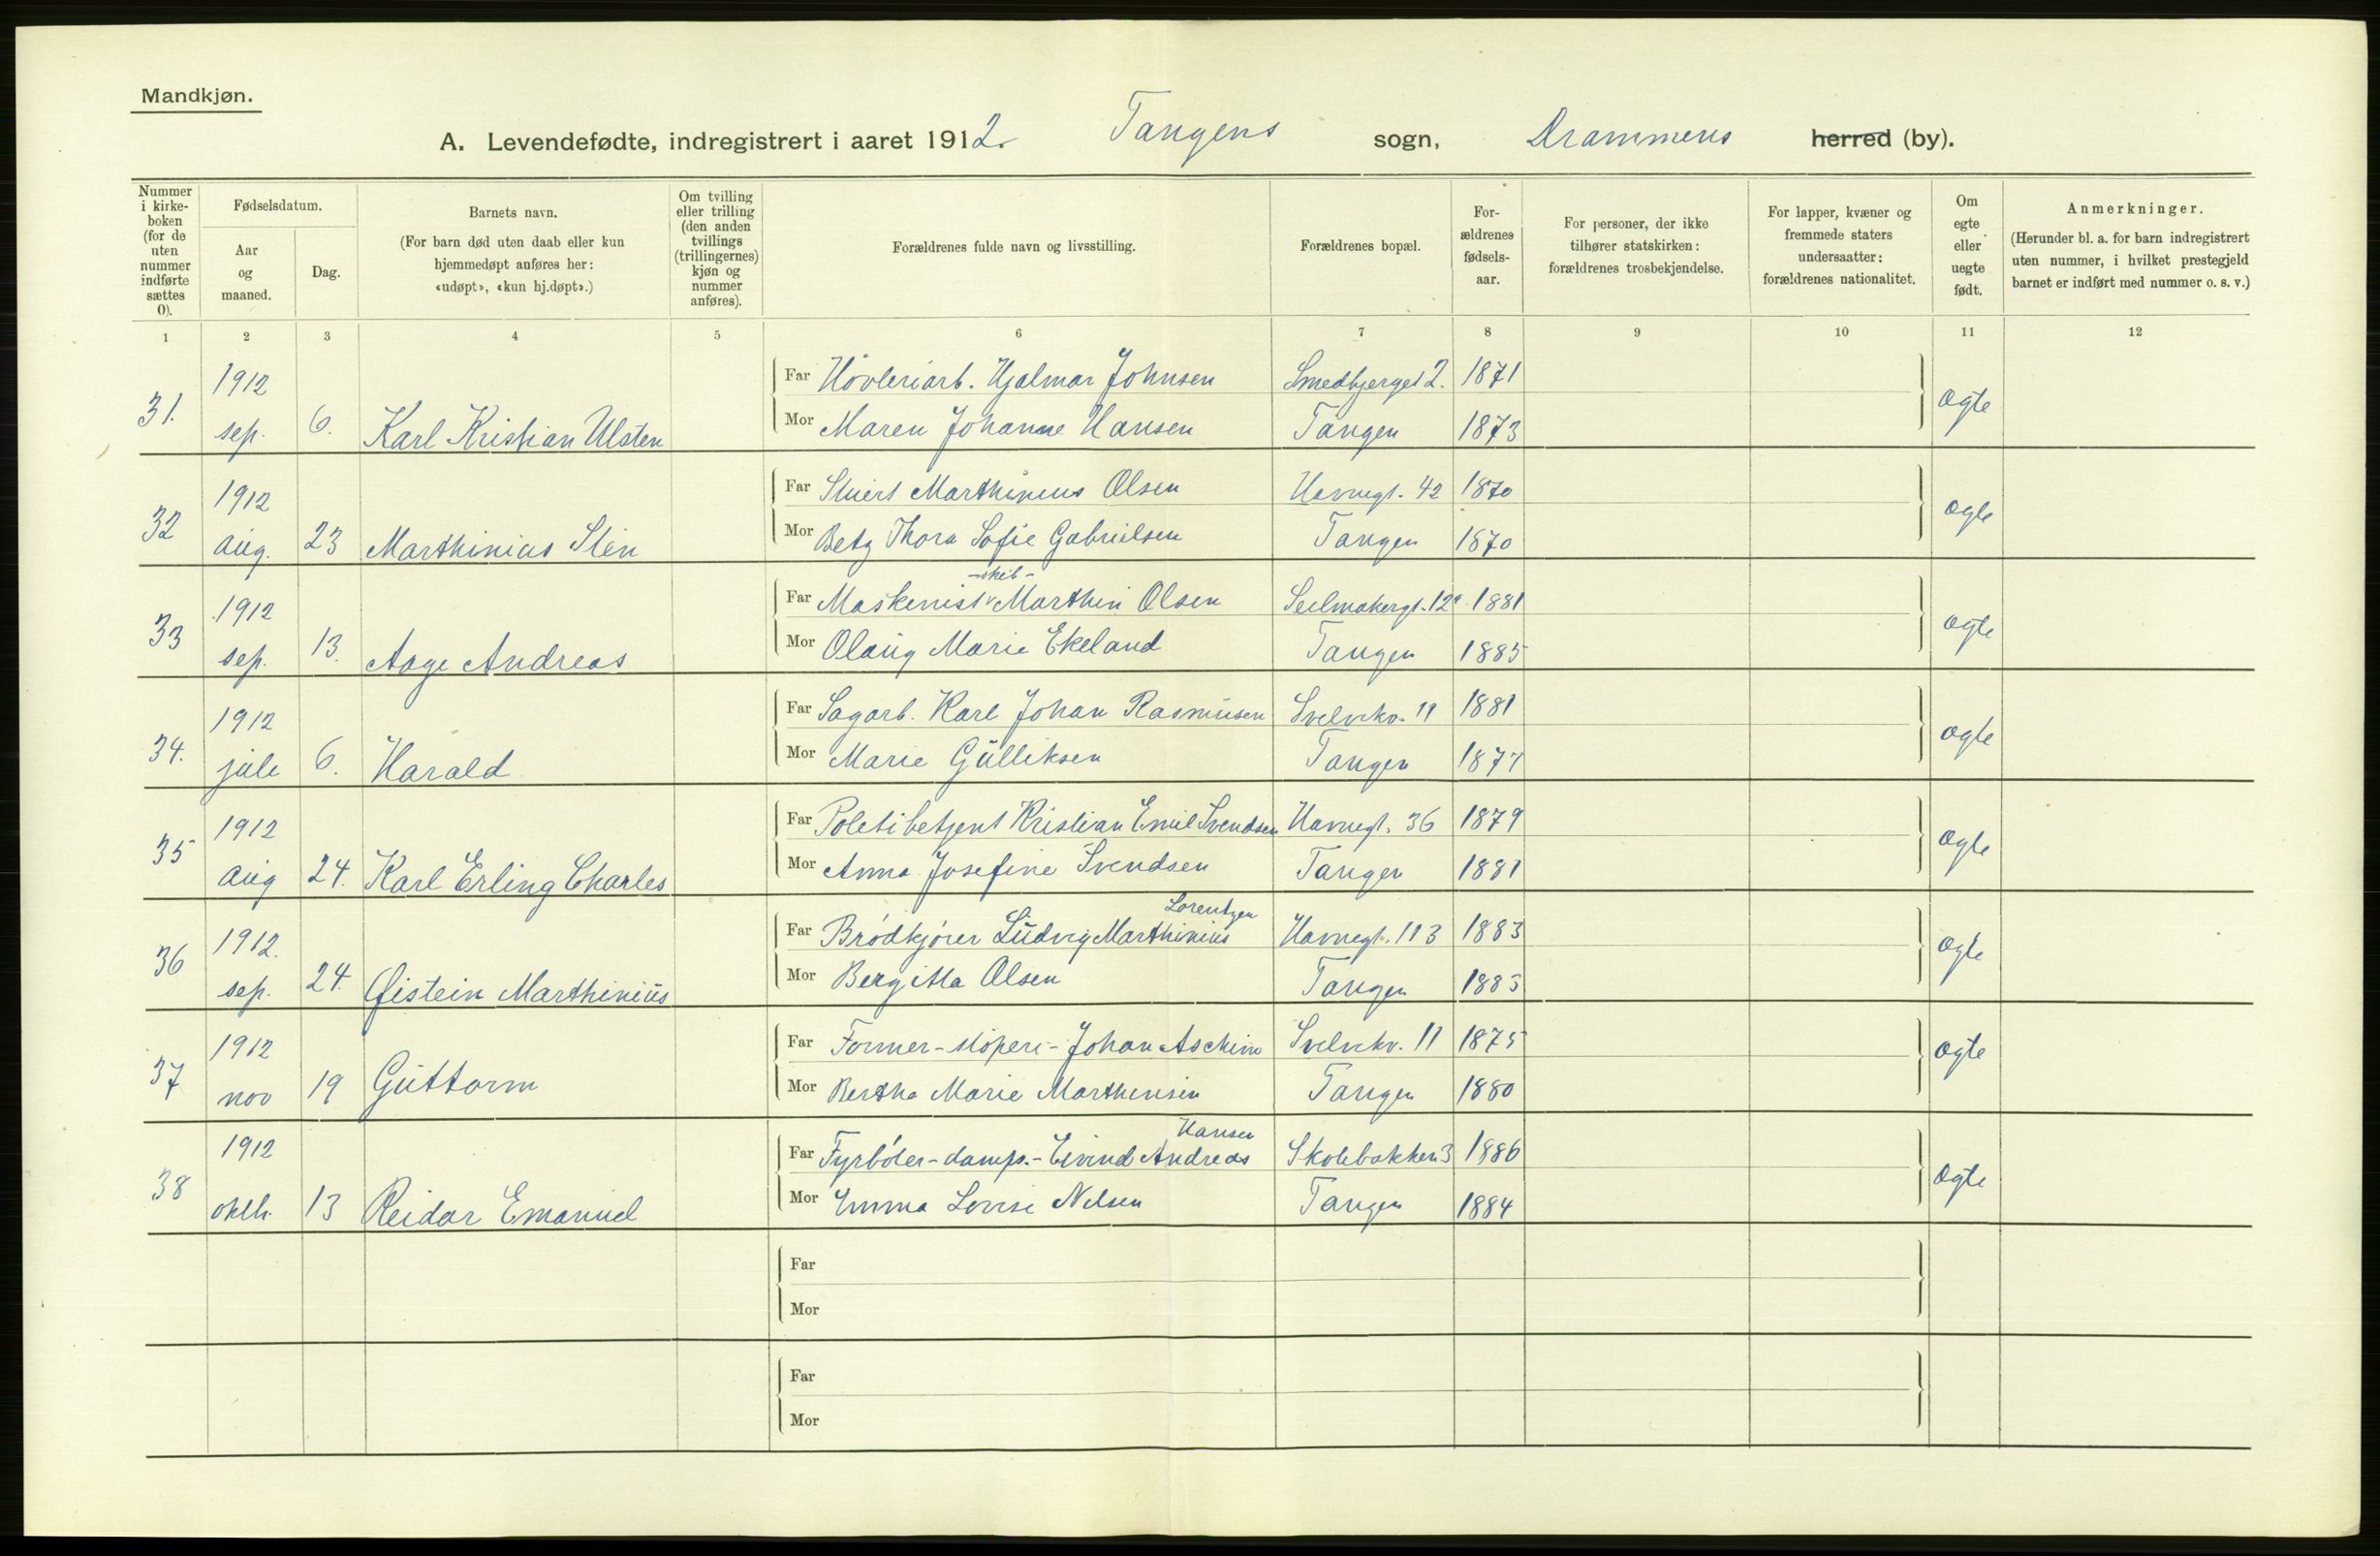 Mandkjøn.
A. Levendefødte, indregistrert i aaret 1912. Tangens sogn, Drammens herred (by).
Nummer i kirke-boken (for de uten nummer indførte sættes 0).
Fødselsdatum.
Aar og maaned.
Dag.
Barnets navn.
(For barn død uten daab eller kun hjemmedøpt anføres her: «udøpt», «kun hj.døpt».)
Om tvilling eller trilling (den anden tvillings (trillingernes) kjøn og nummer anføres).
Forældrenes fulde navn og livsstilling.
Forældrenes bopæl.
For-ældrenes fødsels-aar.
For personer, der ikke tilhører statskirken: forældrenes trosbekjendelse.
For lapper, kvæner og fremmede staters undersaatter: forældrenes nationalitet.
Om egte eller uegte født.
Anmerkninger.
(Herunder bl. a. for barn indregistrert uten nummer, i hvilket prestegjeld barnet er indført med nummer o. s. v.)
1 2 3 4 5 6 7 8 9 10 11 12
1912 Far Høvleriarb. Hjalmar Johnsen Smedbjerget 2. 1871
31. sep. 6. Karl Kristian Ulsten Mor Maren Johanne Hansen Tangen 1873 ægte
1912 Far Marthinius Olsen Havnegt. 42 1870
32 aug. 23 Marthinius Sten Mor Betzy Thora Sofie Gabrielsen Tangen 1870 ægte
-skib-
1912 Far Maskenist Marthin Olsen Seilmakergt. 12a. 1881
33 sep. 13. Aage Andreas Mor Olaug Marie Ekeland Tangen 1885 ægte
1912 Far Sagarb. Karl Johan Rasmusen Svelvikv. 11 1881
34. juli 6. Harald Mor Marie Gulliksen Tangen 1877 ægte
1912 Far Politibetjent Kristian Emil Svendsen Havnegt. 36 1879
35 aug 24. Karl Erling Charles Mor Anna Josefine Svendsen Tangen 1881 ægte
Lorentzen
1912. Far Brødkjører Ludvig Marthinius Havnegt. 113 1883
36 sep. 24. Øistein Marthinius Mor Bergitta Olsen Tangen 1883 ægte
1912 Far Former-støperi- Johan Aschim Svelvikv. 11 1875
37 nov 19 Guttorm Mor Bertha Marie Marthinsen Tangen 1880 ægte
Hansen
1912 Far Fyrbøter-damps.- Eivind Andreas Skolebakken 3 1886
38 oktb. 13 Reidar Emanuel Mor Emma Lovise Nilsen Tangen 1884 ægte
Far
Mor
Far
Mor